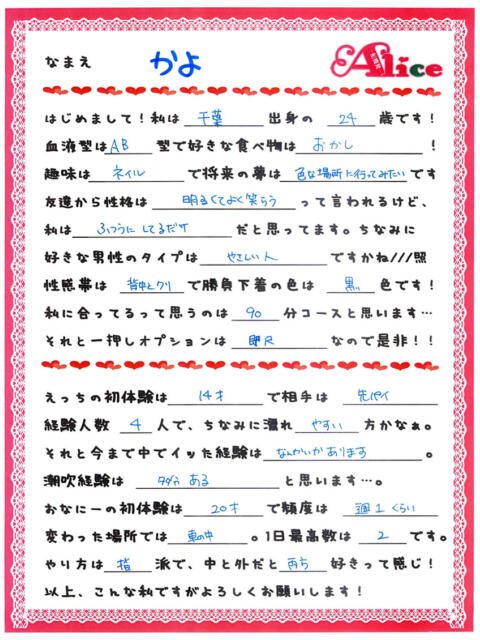 なまえ かよ Alice
はじめまして！私は 千葉 出身の 24 歳です！
血液型は AB 型で好きな食べ物は おかし ！
趣味は ネイル で将来の夢は 色な場所に行ってみたい です
友達から性格は 明るくてよく笑らう って言われるけど、
私は ふつうにしてるだけ だと思ってます。ちなみに
好きな男性のタイプは やさしい人 ですかね///照
性感帯は 背中とクリ で勝負下着の色は 黒 色です！
私に合ってるって思うのは 90 分コースと思います…
それと一押しオプションは 即尺 なので是非！！
経験人数 4 人で、ちなみに濡れ やすい 方かなぁ。
それと今まで中でイッた経験は なんかいかあります 。
潮吹経験は タダ゙ン ある と思います…。
おなにーの初体験は 20才 で頻度は 週1くらい
変わった場所では 車の中 。1日最高数は 2 です。
やり方は 指 派で、中と外だと 両方 好きって感じ！
以上、こんな私ですがよろしくお願いします！